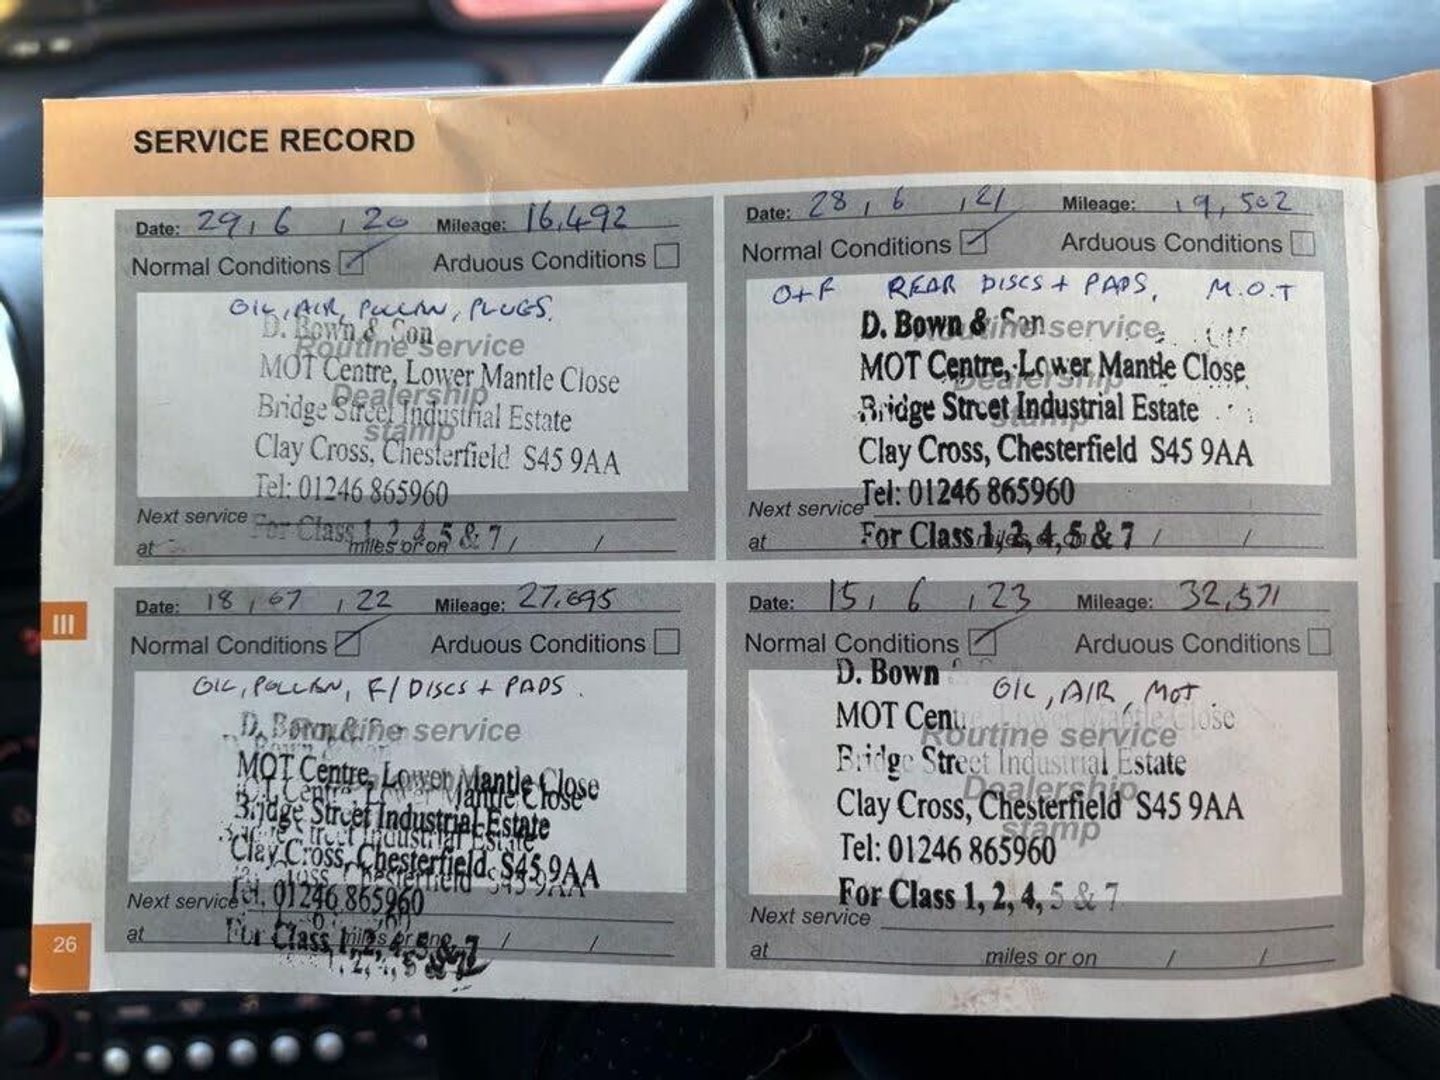 SERVICE RECORD
Date: 29, 6, 20 Mileage: 16,492
Normal Conditions Arduous Conditions
OIL, AIR, POLLAN, PLUGS.
D. Bown & Son
Routine service
MOT Centre, Lower Mantle Close
Dealership
Bridge Street Industrial Estate
stamp
Clay Cross, Chesterfield S45 9AA
Tel: 01246 865960
Next service
For Class 1, 2, 4, 5 & 7
at miles or on / /
Date: 28, 6, 21 Mileage: 19,502
Normal Conditions Arduous Conditions
O+F REAR DISCS + PADS, M.O.T
D. Bown & Son
Routine service
MOT Centre, Lower Mantle Close
Dealership
Bridge Street Industrial Estate
stamp
Clay Cross, Chesterfield S45 9AA
Tel: 01246 865960
Next service
For Class 1, 2, 4, 5 & 7
at miles or on / /
III
Date: 18, 07, 22 Mileage: 27,695
Normal Conditions Arduous Conditions
OIL, POLLAN, F/DISCS + PADS.
D. Bown & Son
Routine service
MOT Centre, Lower Mantle Close
Bridge Street Industrial Estate
Clay Cross, Chesterfield S45 9AA
Tel: 01246 865960
Next service
For Class 1, 2, 4, 5 & 7
at miles or on / /
Date: 15, 6, 23 Mileage: 32,571
Normal Conditions Arduous Conditions
D. Bown
OIL, AIR, MOT
MOT Centre, Lower Mantle Close
Routine service
Bridge Street Industrial Estate
Dealership
Clay Cross, Chesterfield S45 9AA
stamp
Tel: 01246 865960
For Class 1, 2, 4, 5 & 7
Next service
at miles or on / /
26